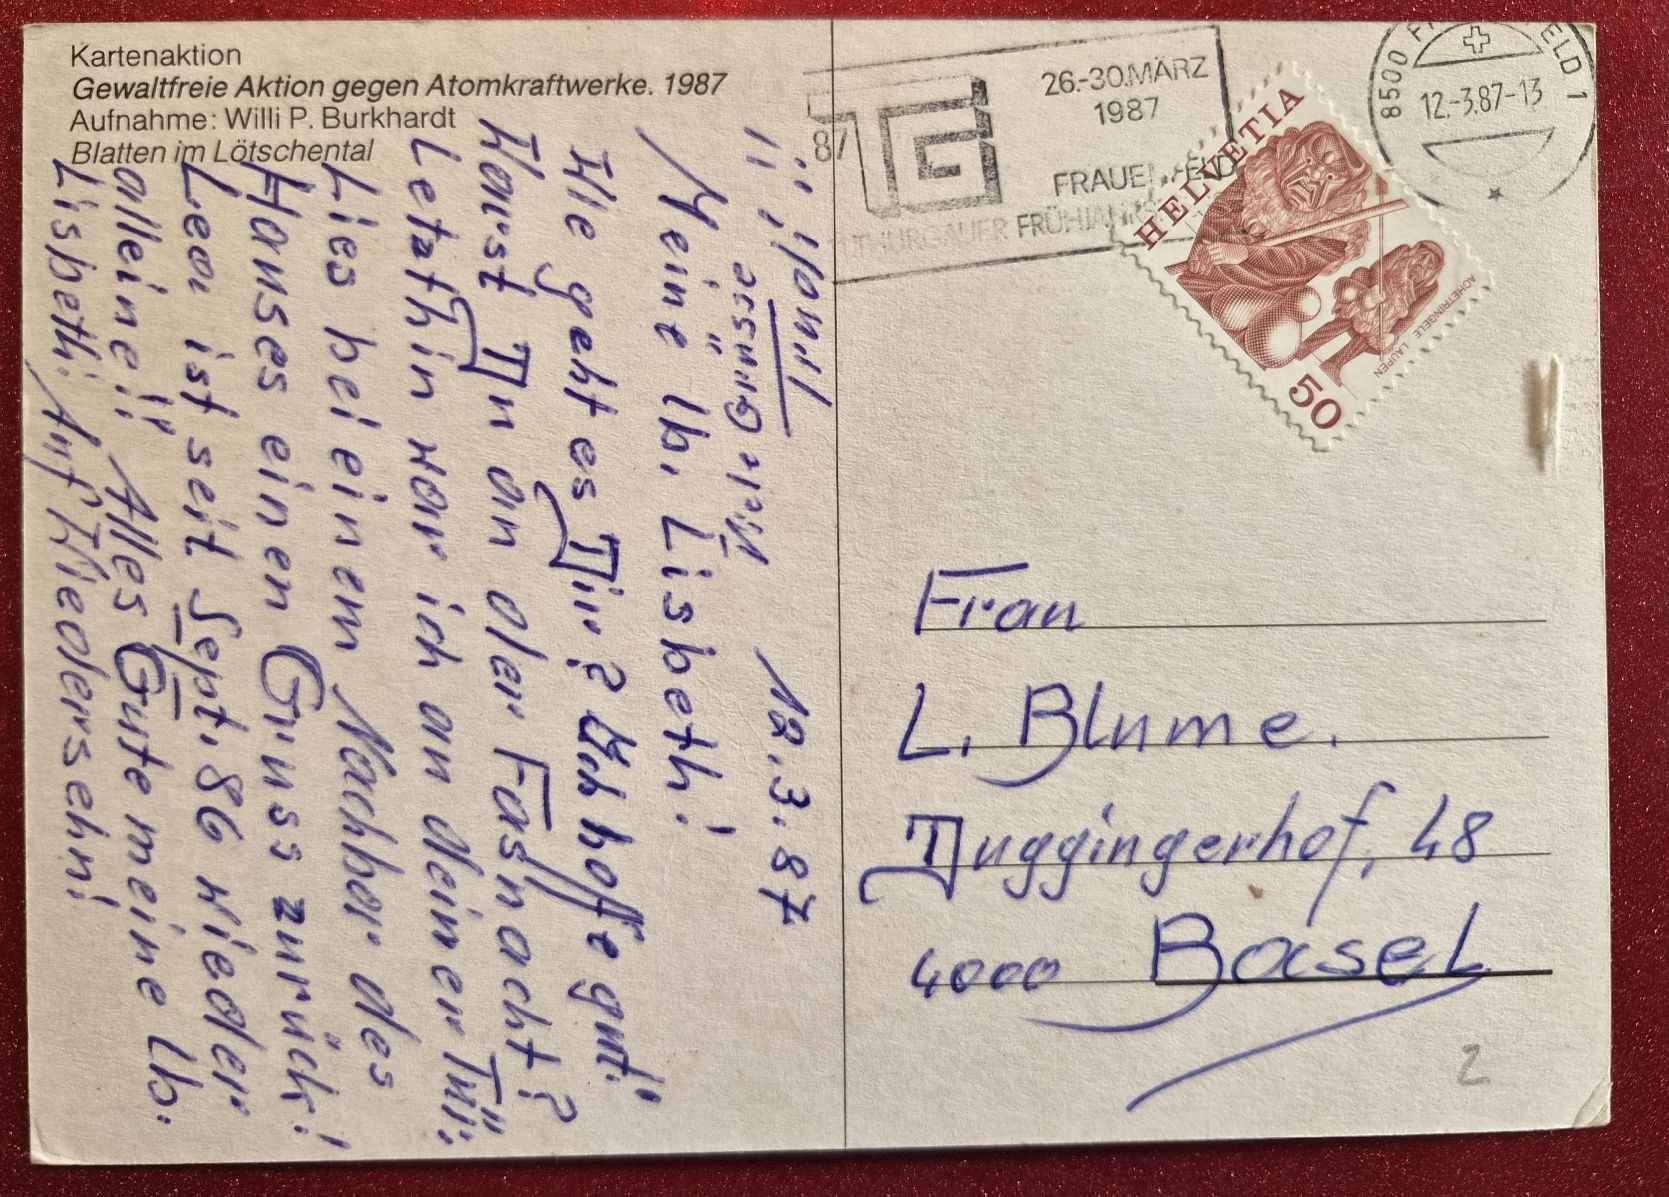 Kartenaktion
Gewaltfreie Aktion gegen Atomkraftwerke. 1987
Aufnahme: Willi P. Burkhardt
Blatten im Lötschental
12.3.87
Meine lb. Lisbeth!
Wie geht es Dir? Ich hoffe gut!
Warst Du an der Fasnacht?
Letzthin war ich an deiner Tü:
Lies bei einem Nachbar des
Hauses einen Gruss zurück!
Leo ist seit Sept. 86 wieder
alleine!! Alles Gute meine lb.
Lisbeth! Auf Wiedersehn!
Viele Grüsse
Paul!!
87 TG
26.-30.MÄRZ
1987
FRAUENFELD
THURGAUER FRÜHJAHRS
8500 FRAUENFELD 1
12.-3.87-13
HELVETIA
ACHETRINGELE LAUPEN
50
Frau
L. Blume.
Duggingerhof, 48
4000 Basel
2